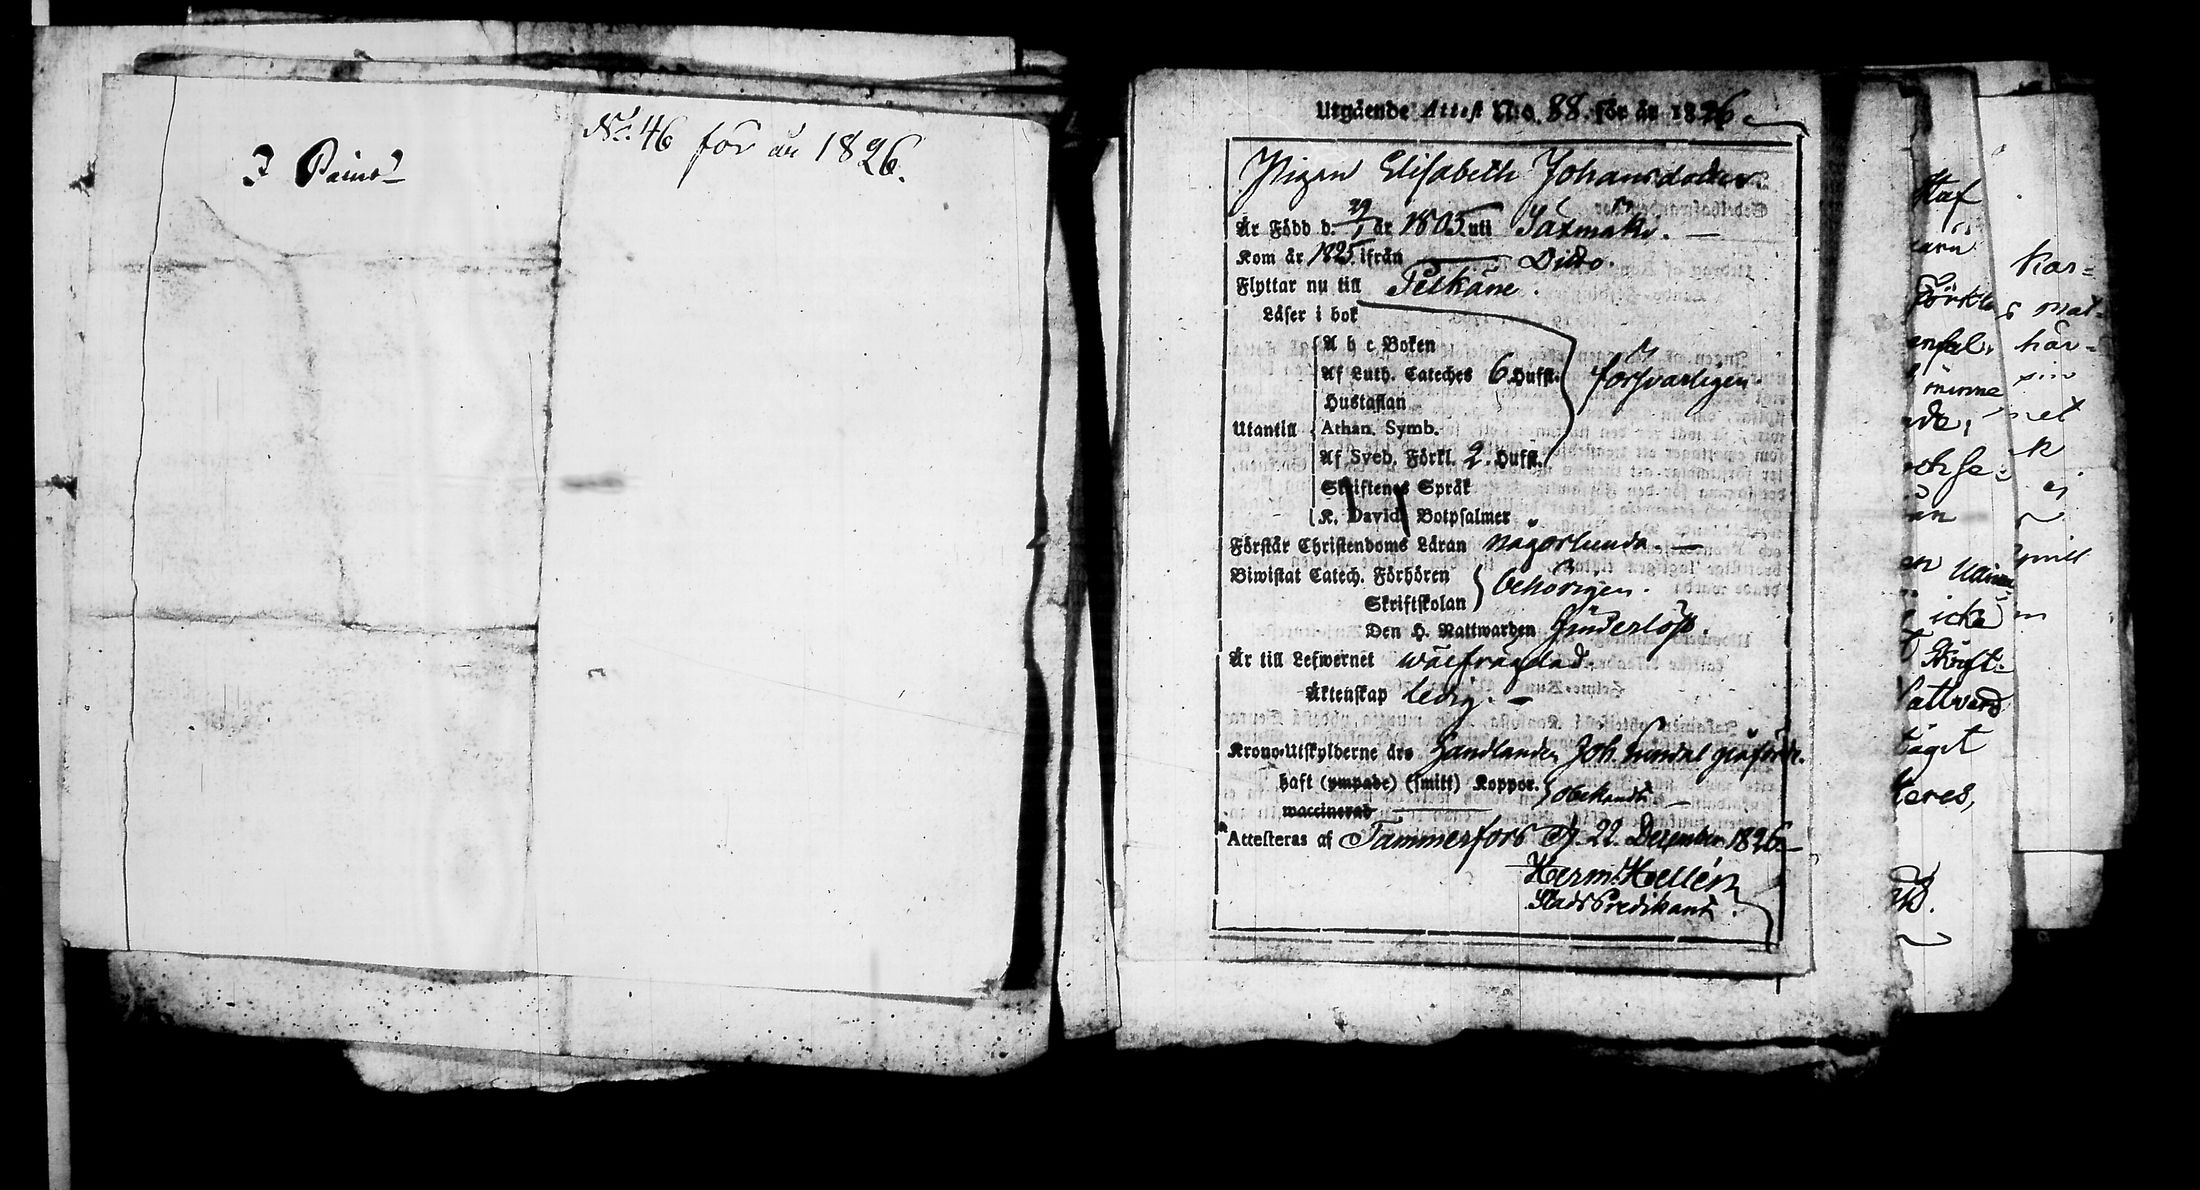 No. 46 för år 1826.
Utgående Attest N:o. 88. för år 1826.
Pigan Elisabeth Johansdotter
Är Född d. 29/1 år 1805. uti Saxmäki.
Kom år 1825. ifrån Ditto.
Flyttar nu till Pelkäne.
Läser i bok
A b c Boken
Af Luth. Cateches 6. Hufst. försvarligen.
Hustaflan
Utantill Athan. Symb.
Af Sveb. Förkl. 2. Hufst.
Skriftenes Språk
K. Davids Botpsalmer
Förstår Christendoms Läran någorlunda.
Biwistat Catech. Förhören behörigen.
Skriftskolan
Den H. Nattwarden
Är till Lefwernet wälfrägdad.
Äktenskap ledig.
Krono-Utskylderne äro Handlanden Joh.
haft (ympade) (smitt) Koppor. obekandt
waccinerad
Attesteras af Tammerfors d. 22. December 1826.
Herm. Hellén
StadsPredikant.
Staf
Förkla
minne
icke
Skrift-
Nattvard
Kar-